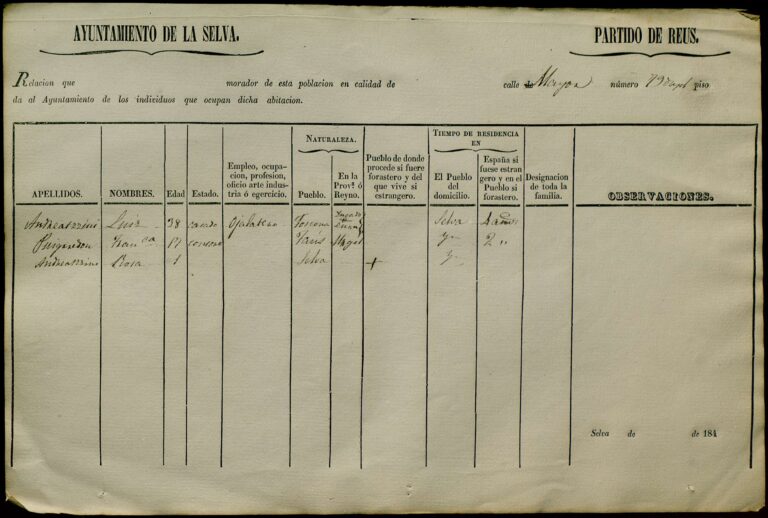 AYUNTAMIENTO DE LA SELVA. PARTIDO DE REUS.
Relacion que morador de esta poblacion en calidad de calle de Mayor número piso
da al Ayuntamiento de los individuos que ocupan dicha abitacion.
APELLIDOS. NOMBRES. Edad Estado. Empleo, ocupacion, profesion, oficio arte industria ó egercicio. NATURALEZA. Pueblo. En la Prov.ª ó Reyno. Pueblo de donde procede si fuere forastero y del que vive si estrangero. TIEMPO DE RESIDENCIA EN El Pueblo del domicilio. España si fuese estrangero y en el Pueblo si forastero. Designacion de toda la familia. OBSERVACIONES.
Luis 38 casado Ojalatero Toscana Selva
Fran.ca Paris
Rosa 1 Selva +
Selva de de 184